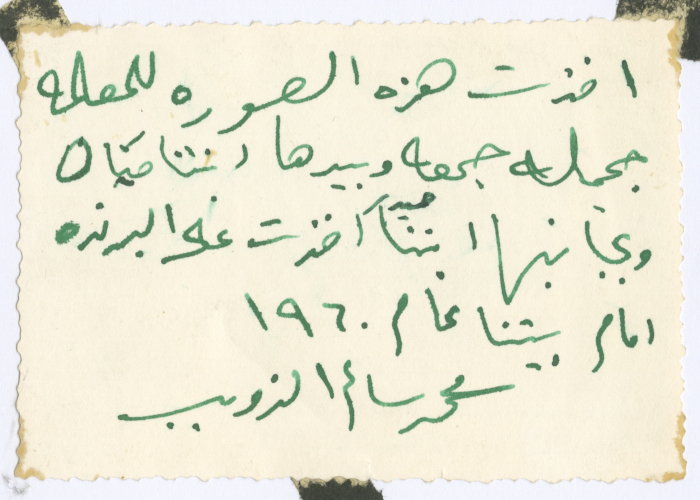 اخذت هذه الصوره للمعلمه
جميله جمعه وبيدها ابنتنا
وبجانبها ابنتنا اخذت على البرنده
امام بيتنا عام ١٩٦٠
محمد سالم الذويب